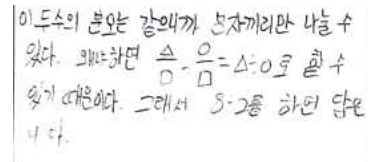 이 두수의 분모는 같으니까 분자끼리만 나눌 수
있다. 왜냐하면 △/□ ÷ ○/□ = △÷○로 할 수
있기 때문이다. 그래서 8÷2를 하면 답은
4다.